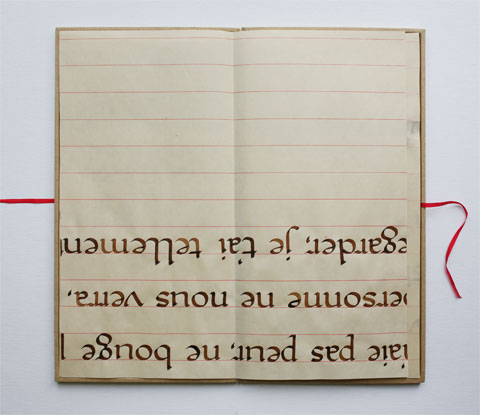 aie pas peur, ne bouge
personne ne nous verra,
egarder, je t'ai tellement